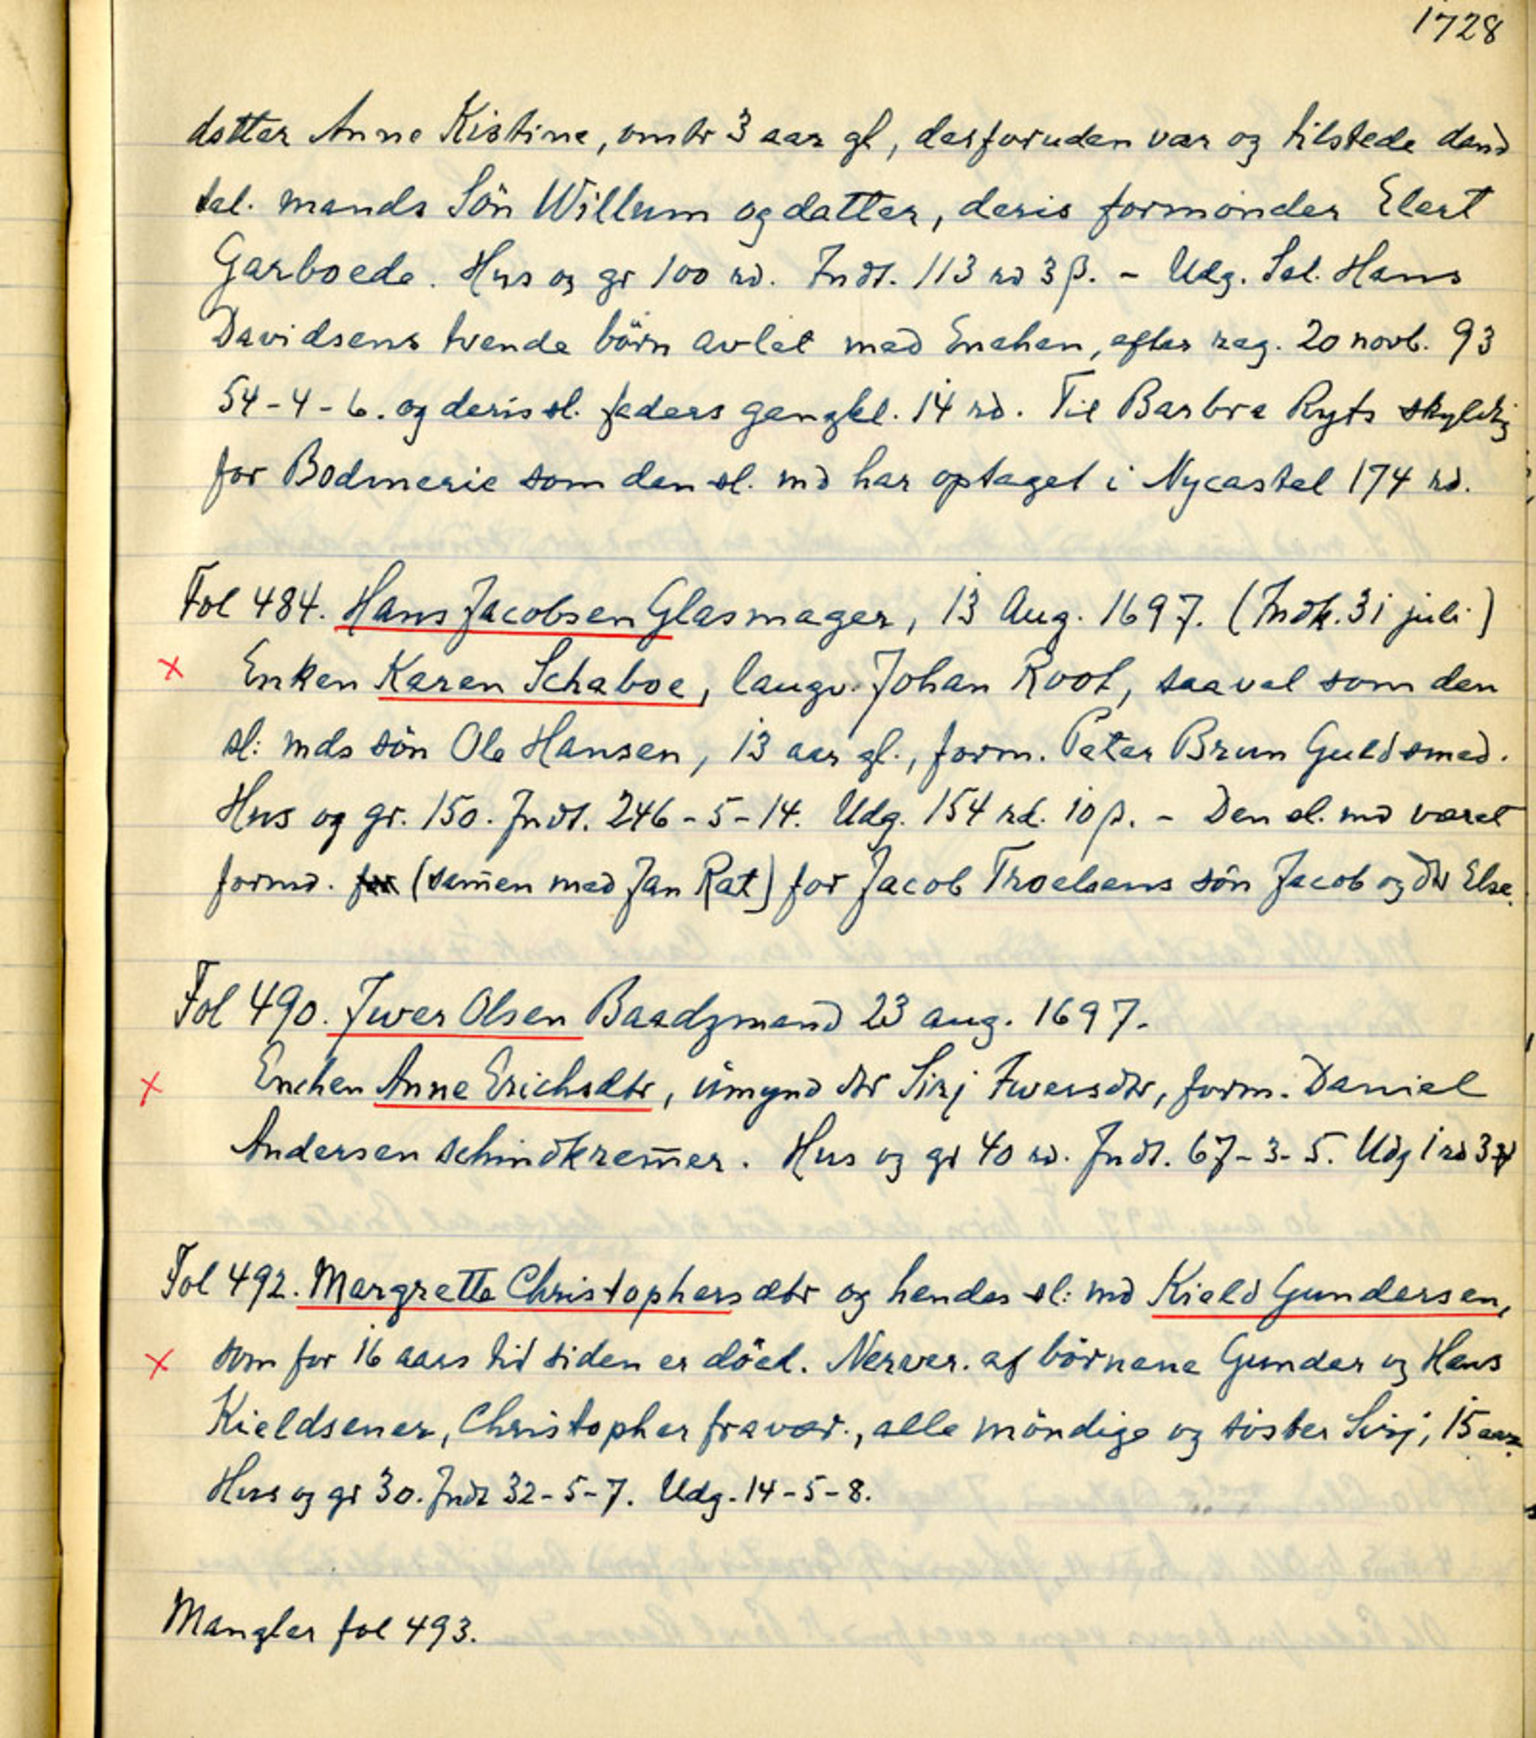 1728
datter Anne Kistine, omtr 3 aar gl, desforuden var og tilstede dend
sal. mands Sön Willum og datter, deris formönder Elert
Garboede. Hus og gr 100 rd. Indt. 113 rd 3 β. - Udg. Sal. Hans
Davidsens tvende börn avlet med Enchen, efter reg. 20 novb. 93
54-4-6. og deris sl. faders gangkl. 14 rd. Til Barbra Ryts skyldig
for Bodmerie som den sl. md har optaget i Nycastel 174 rd.
Fol 484. Hans Jacobsen Glasmager, 13 Aug. 1697. (Indk. 31 juli)
x Enken Karen Schaboe, laugv. Johan Root, saavel som den
sl: mds sön Ole Hansen, 13 aar gl., form. Peter Brun Guldsmed.
Hus og gr. 150. Indt. 246-5-14. Udg. 154 rd. 10 β. - Den sl. md været
formd. for (samen med Jan Rat) for Jacob Troelsens sön Jacob og dtr Else.
Fol 490. Iwer Olsen Baadzmand 23 aug. 1697.
x Enchen Anne Erichsdtr, umynd dtr Sirj Iwersdtr, form. Daniel
Andersen schindkremer. Hus og gr 40 rd. Indt. 67-3-5. Udg 1 rd 3
Fol 492. Margrette Christophersdtr og hendes sl: md Kield Gundersen,
x som for 16 aars tid siden er döed. Nerver. af börnene Gunder og Hans
Kieldsener, Christopher fravær., alle möndige og söster Sirj, 15 aar.
Hus og gr 30. Indt 32-5-7. Udg. 14-5-8.
Mangler fol 493.